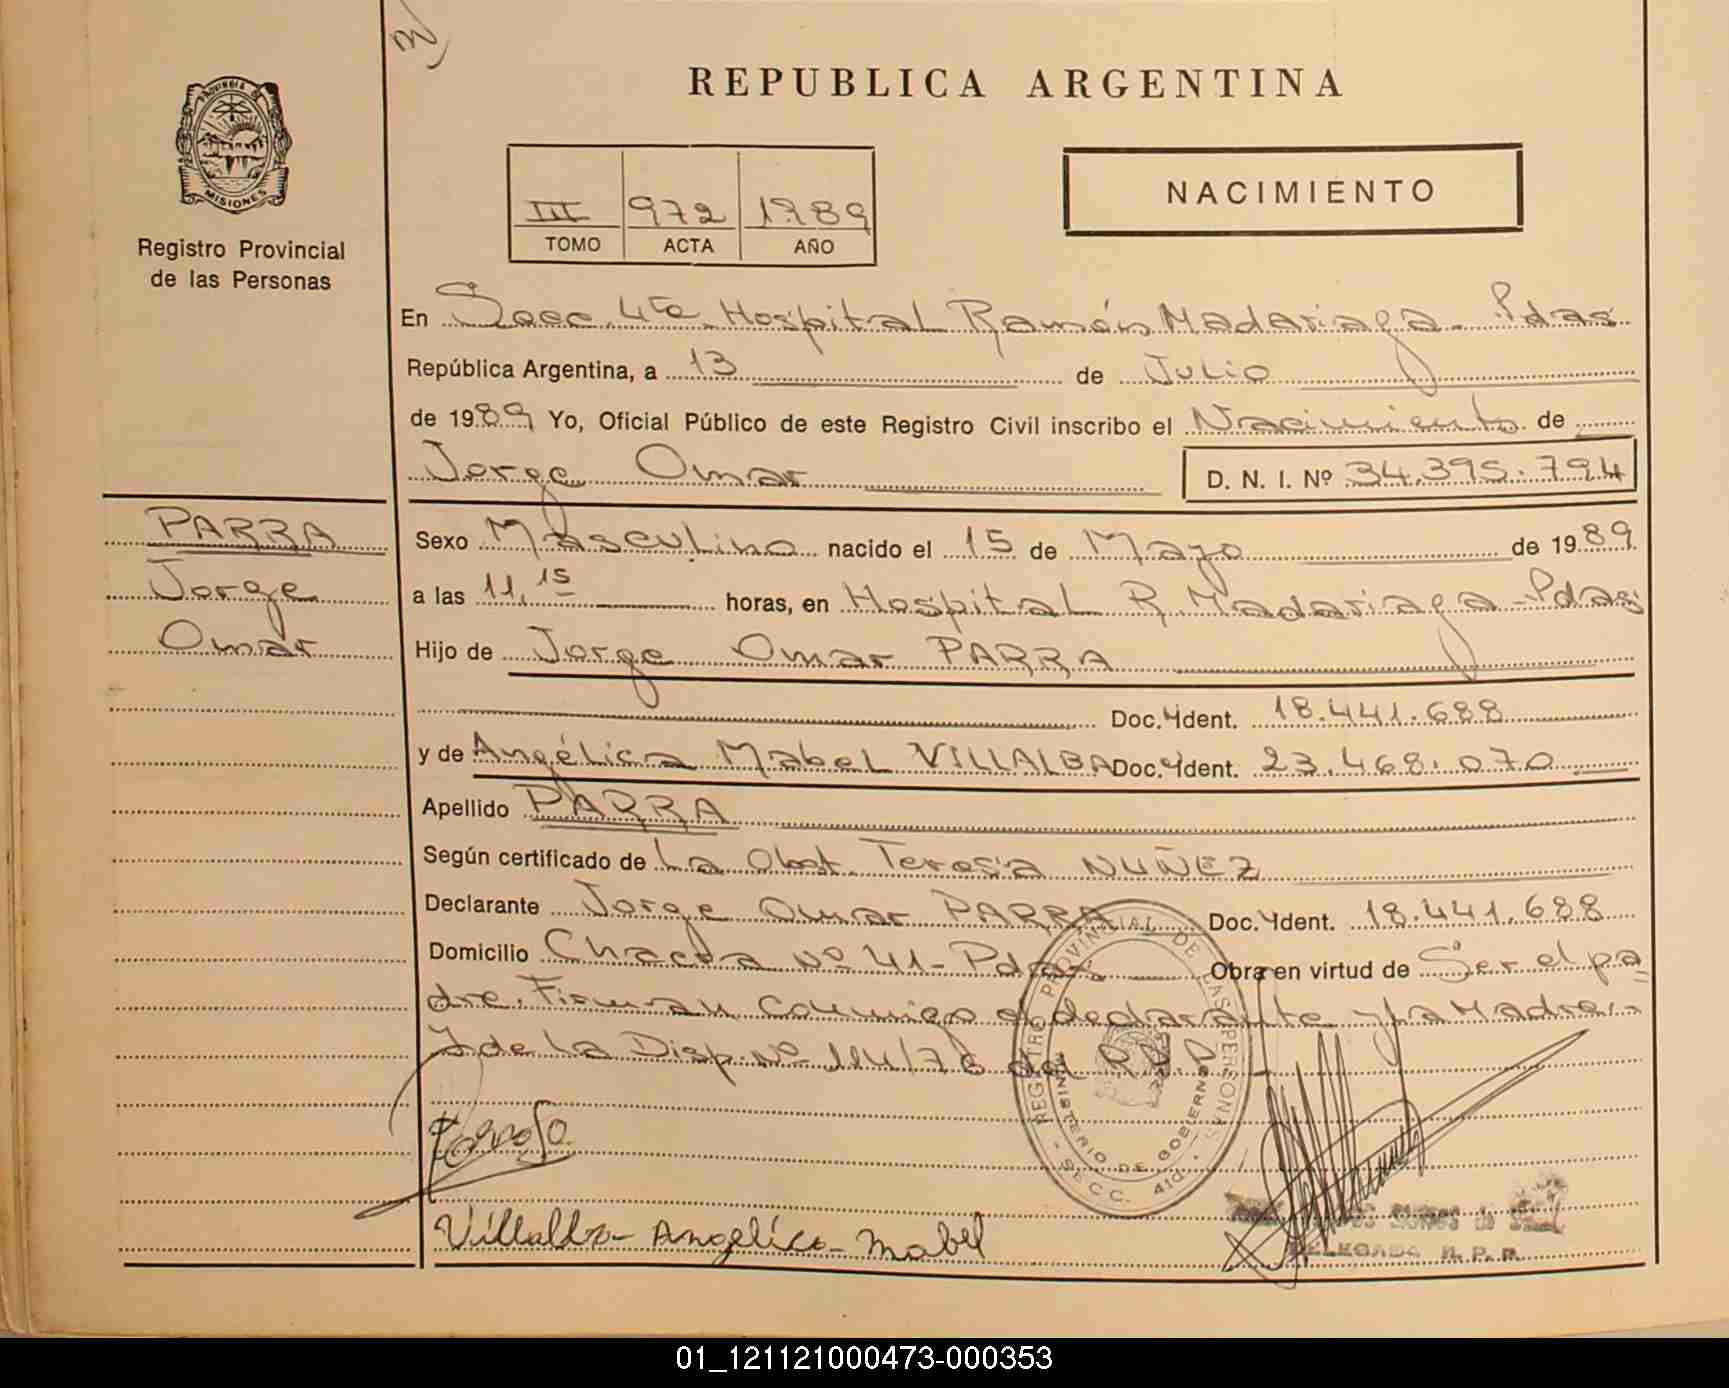 REPUBLICA ARGENTINA
PROVINCIA DE
MISIONES
Registro Provincial
de las Personas
III 972 1989
TOMO ACTA AÑO
NACIMIENTO
En Secc. 4ta. Hospital Ramón Madariaga. Pdas
República Argentina, a 13 de Julio
de 1989 Yo, Oficial Público de este Registro Civil inscribo el Nacimiento de
Jorge Omar D. N. I. Nº 34.395.794
PARRA
Jorge
Omar
Sexo Masculino nacido el 15 de Mayo de 1989
a las 11,15 horas, en Hospital R. Madariaga - Pdas
Hijo de Jorge Omar PARRA
Doc. Ident. 18.441.688
y de Angélica Mabel VILLALBA Doc. Ident. 23.468.070
Apellido PARRA
Según certificado de La Obst. Teresa NUÑEZ
Declarante Jorge Omar PARRA Doc. Ident. 18.441.688
Domicilio Chacra Nº 41 - Pdas. Obra en virtud de Ser el pa
dre. Firman conmigo el declarante y la Madre.
de la Disp. Nº 114/78 del R.P.P.
REGISTRO PROVINCIAL DE LAS PERSONAS
MINISTERIO DE GOBIERNO
- SECC. 4ta. -
Villalba - Angélica - Mabel
DELEGADA R. P. P.
01_121121000473-000353